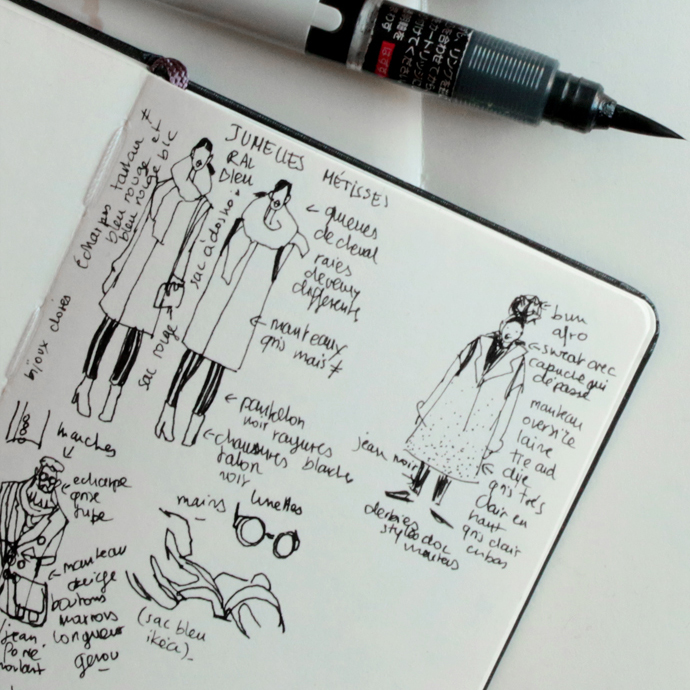 JUMELLES MÉTISSES
écharpes tartan ≠
bleu rouge et
bleu rouge bic
RAL
bleu
sac à dos noir
← queues
de cheval
raies
cheveux
différentes
← manteaux
gris mais ≠
sac rouge
← pantalon
noir rayures
← chaussures blanches
talon
noir
bijoux dorés
← bun
afro
← sweat avec
capuche qui
dépasse
manteau
oversize
laine
tie and
dye
gris très
clair en
haut
gris clair
en bas
jean noir
derbies doc
style
manches
← echarpe
grise
← manteau
beige
boutons
marrons
longueur
genou
jean
mains
lunettes
(sac bleu
ikéa)